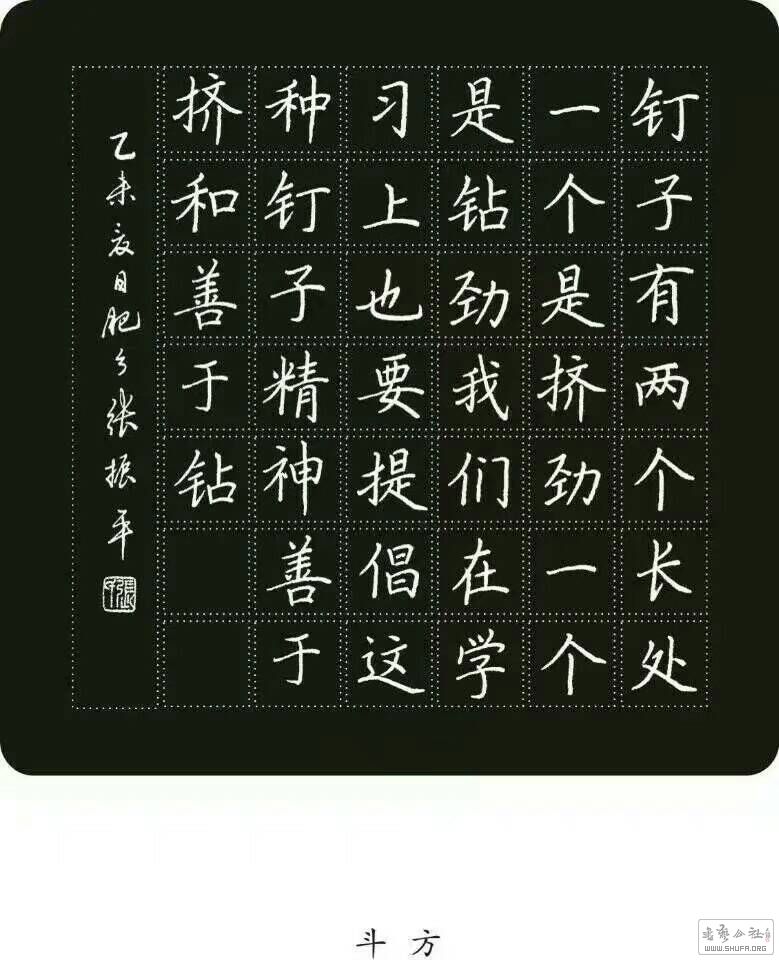 钉子有两个长处
一个是挤劲一个
是钻劲我们在学
习上也要提倡这
种钉子精神善于
挤和善于钻
乙未夏日肥乡张振平
斗方
WWW.SHUFA.ORG